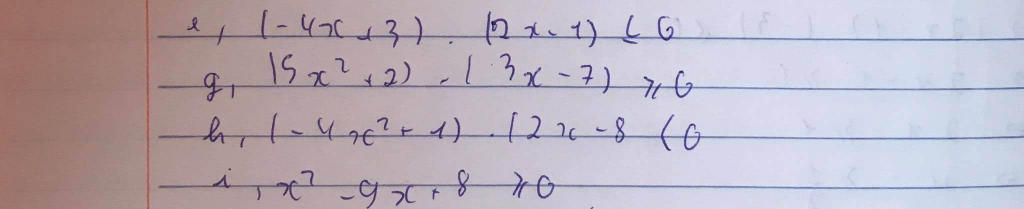 e, (-4x+3) . (2x-1) ≤ 0
g, (5x²+2) . (3x-7) ≥ 0
h, (-4x²+1) . (2x-8 < 0
i, x²-9x+8 ≥ 0